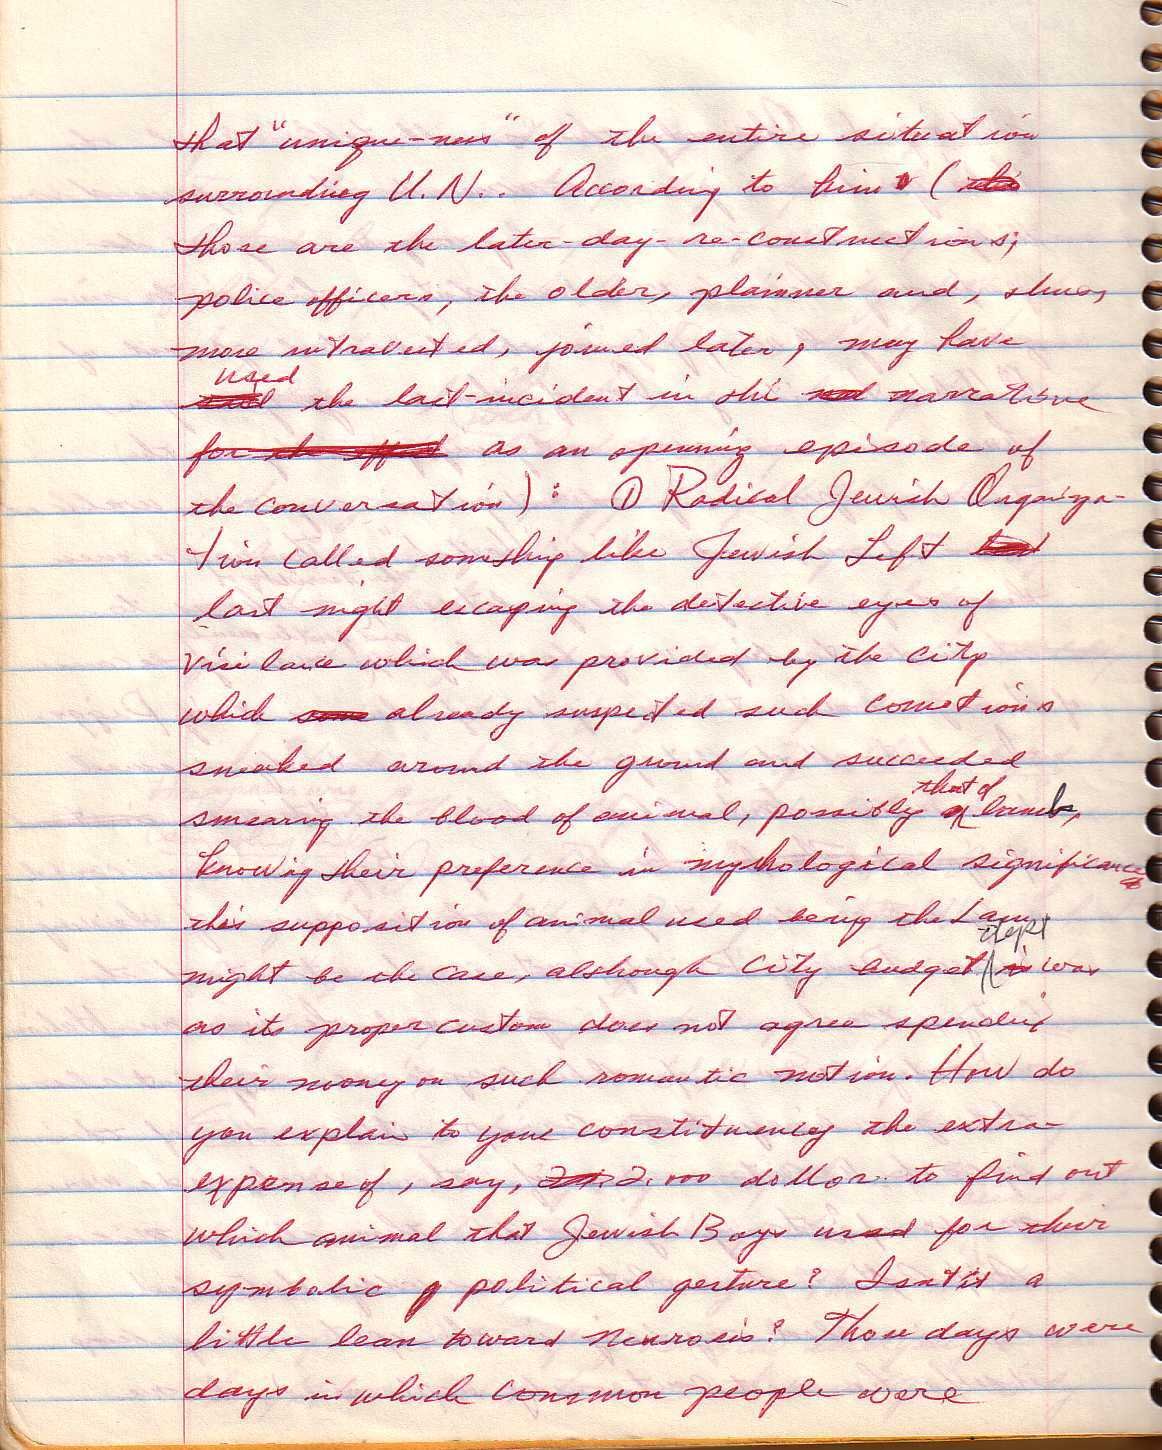 that "unique-ness" of the entire situation
surrounding U.N.. According to him (
those are the later-day-re-constructions;
police officers, the older, planner and,
more introverted, joined later, may have
used the last-incident in the narrative
for the effect as an openning episode of
the conversation): ① Radical Jewish Organiza-
tion called something like Jewish Left
last night escaping the detective eyes of
vigilance which was provided by the city
which some already suspected such comotions
sneaked around the ground and succeeded
smearing the blood of animal, possibly that of lamb,
knowig their preference in mythological significance
this supposition of animal used being the Lam
might be the case, although City budget dept was
as its proper custom does not agree spending
their money on such romantic notion. How do
you explain to your constituency the extra-
expense of, say, 2,000 dollar to find out
which animal that Jewish Boys used for their
symbolic political gesture? Isn't it a
little lean toward neurosis? Those days were
days in which common people were